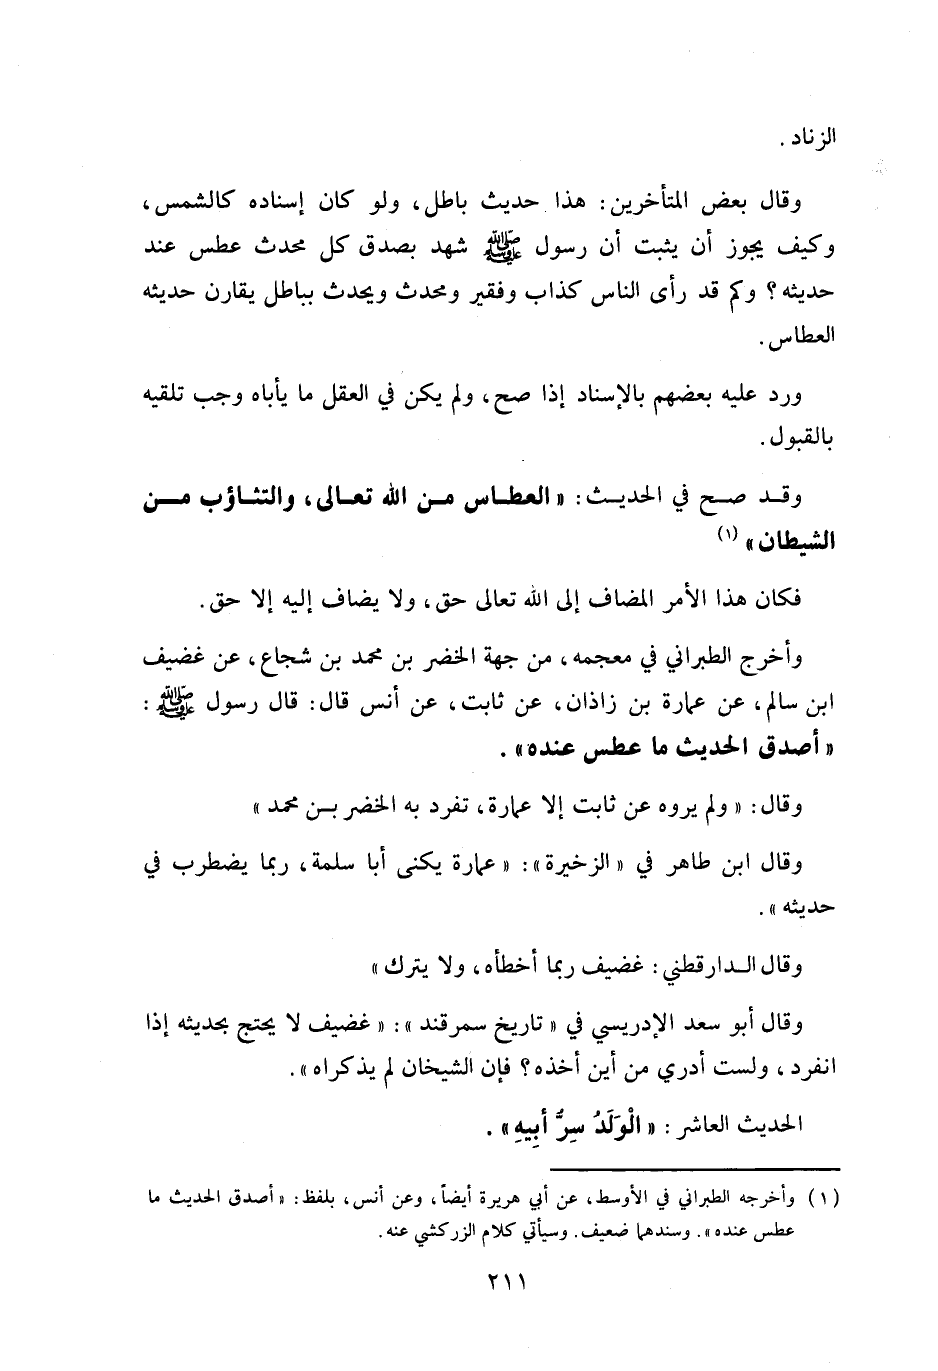 الزناد .
وقال بعض المتأخرين : هذا حديث باطل ، ولو كان إسناده كالشمس ،
وكيف يجوز أن يثبت أن رسول ﷺ شهد بصدق كل محدث عطس عند
حديثه ؟ وكم قد رأى الناس كذاب وفقير ومحدث ويحدث بباطل يقارن حديثه
العطاس .
ورد عليه بعضهم بالإسناد إذا صح ، ولم يكن في العقل ما يأباه وجب تلقيه
بالقبول .
وقد صح في الحديث : « العطاس من الله تعالى ، والتثاؤب من
الشيطان » (١)
فكان هذا الأمر المضاف إلى الله تعالى حق ، ولا يضاف إليه إلا حق .
وأخرج الطبراني في معجمه ، من جهة الخضر بن محمد بن شجاع ، عن غضيف
ابن سالم ، عن عمارة بن زاذان ، عن ثابت ، عن أنس قال : قال رسول ﷺ :
« أصدق الحديث ما عطس عنده » .
وقال : « ولم يروه عن ثابت إلا عمارة ، تفرد به الخضر بن محمد »
وقال ابن طاهر في « الزخيرة » : « عمارة يكنى أبا سلمة ، ربما يضطرب في
حديثه » .
وقال الدارقطني : غضيف ربما أخطأه ، ولا يترك »
وقال أبو سعد الإدريسي في « تاريخ سمرقند » : « غضيف لا يحتج بحديثه إذا
انفرد ، ولست أدري من أين أخذه ؟ فإن الشيخان لم يذكراه » .
الحديث العاشر : « الْوَلَدُ سِرُّ أَبِيهِ » .
(١) وأخرجه الطبراني في الأوسط ، عن أبي هريرة أيضاً ، وعن أنس ، بلفظ : « أصدق الحديث ما
عطس عنده » . وسندهما ضعيف . وسيأتي كلام الزركشي عنه .
٢١١